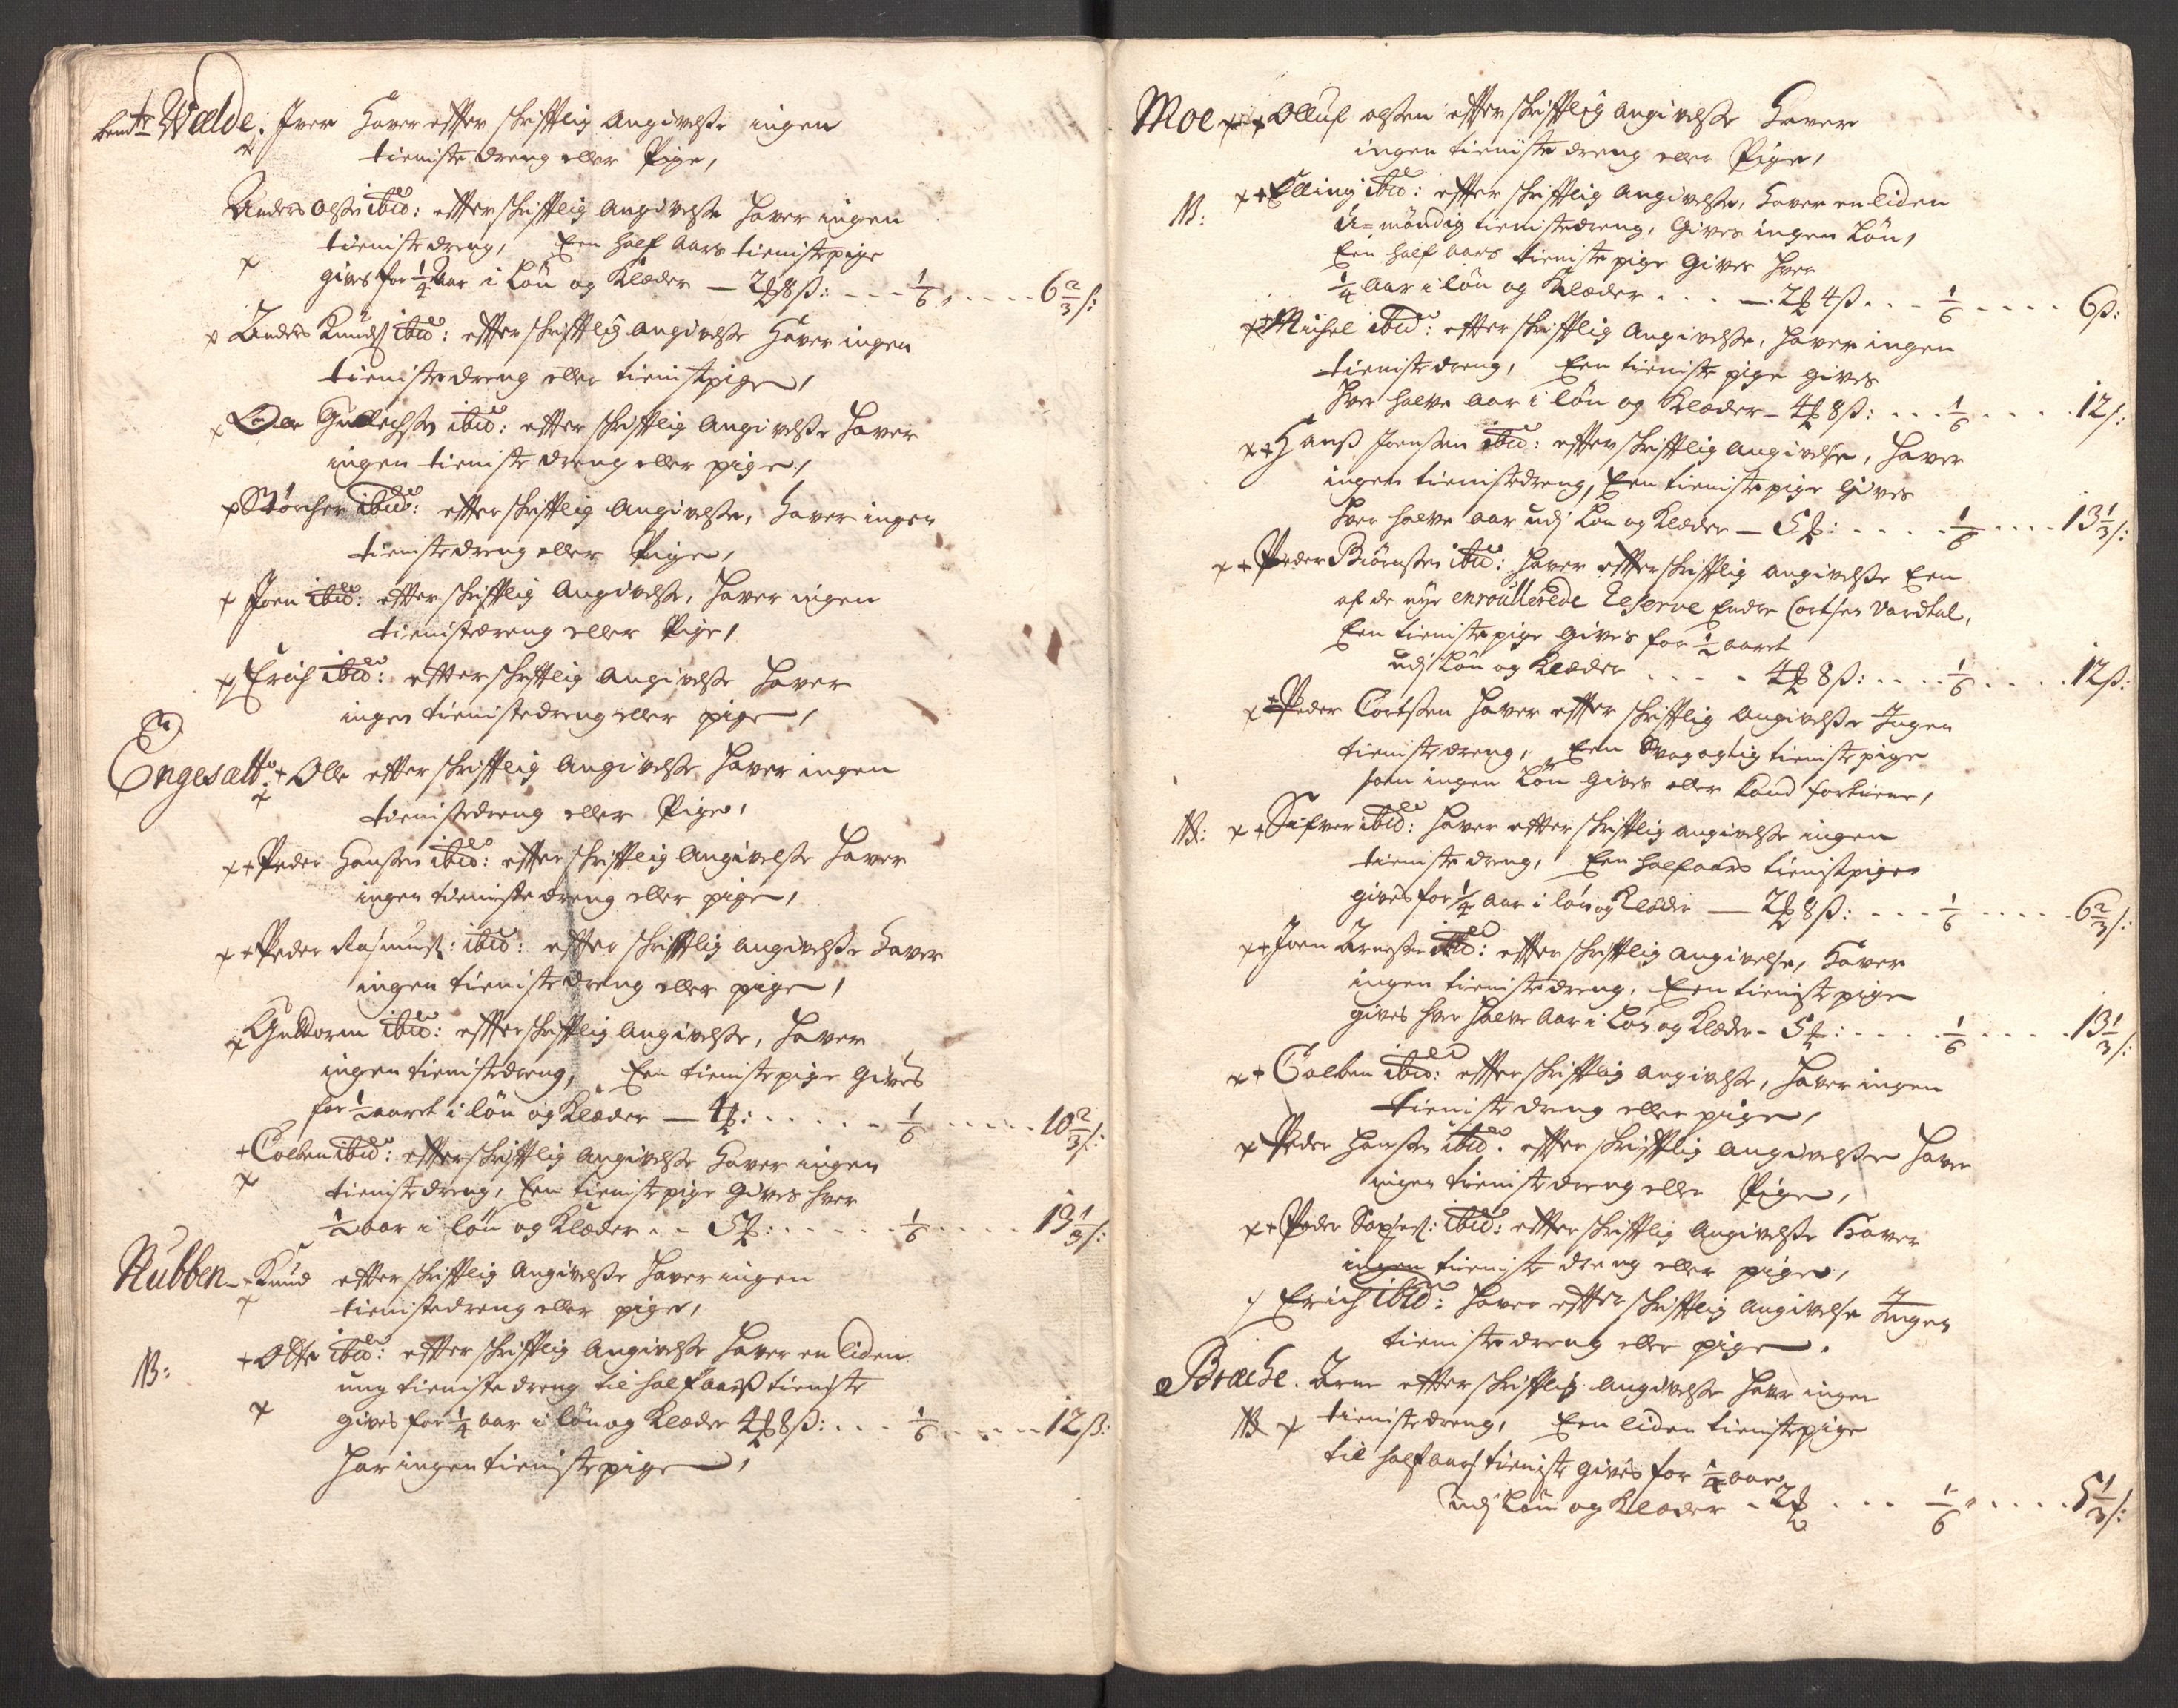 Wælde: Iver Haver effter schrifftlig Angivelsse ingen
tieniste dreng eller Pige,
Anders Olss: ibid: effter schrifftlig Angivelsse haver ingen
tieniste dreng, Een half Aars tienistepige
gives for 1/4 Aar i Løn og Klæder — 2 8ß: --- 1/6 ---- 6 2/3 ß:
x Anders Knuds ibid: effter schrifftlig Angivelsse Haver ingen
tienistedreng eller tienistpige,
x Ole ibid: effter schrifftlig Angivelsse haver
ingen tieniste dreng eller pige,
x ibid: effter schrifftlig Angivelsse, haver ingen
tienistedreng eller Pige,
x Joen ibid: effter schrifftlig Angivelsse, haver ingen
tienistedreng eller Pige,
x Erich ibid: effter schrifftlig Angivelsse haver
ingen tienistedreng eller pige,
Engesætt: + Olle effter schrifftlig Angivelsse haver ingen
tienistedreng eller Pige,
x + Peder Hanssen ibid: effter schrifftlig Angivelsse haver
ingen tieniste dreng eller pige,
x + Peder Rasmuss: ibid: effter schrifftlig Angivelsse haver
ingen tieniste dreng eller pige,
x Guttorm ibid: effter schrifftlig Angivelsse, haver
ingen tienistedreng, Een tienistepige gives
for 1/2 aaret i løn og Klæder — 4: ----- 1/6 ----- 10 2/3 ß:
+ Colben ibid: effter schrifftlig Angivelsse haver ingen
x tieniste dreng, Een tienistepige gives hver
1/2 aar i løn og Klæder -- 5: ----- 1/6 ---- 13 1/3 ß:
Nubben - + Knud effter schrifftlig Angivelsse haver ingen
x tienistedreng eller pige,
NB: + Olle ibid: effter schrifftlig Angivelsse haver en liden
ung tieniste dreng til half aarß tieniste
x gives for 1/4 aar i løn og Klæder 4 8ß: --- 1/6 ----- 12 ß:
har ingen tienistepige,
Moe x + Olluf olssen effter schrifftlig Angivelsse haver
ingen tieniste dreng eller Pige,
NB: x + Elling ibid: effter schrifftlig Angivelsse, haver en liden
u=møndig tienistedreng, Gives ingen Løn,
Een half aars tieniste pige Gives hver
1/4 Aar i løn og Klæder --- 2 4ß --- 1/6 ---- 6ß:
x + Michel ibid: effter schrifftlig Angivelsse, haver ingen
tieniste dreng, Een tieniste pige gives
hver halve aar i løn og Klæder - 4 8ß: --- 1/6 ----- 12ß:
x + Hanß Joenssen ibid: effter schrifftlig Angivelse, haver
ingen tienistedreng, Een tieniste pige Gives
hver halve aar udj Løn og Klæder — 5: ----- 1/6 ---- 13 1/3 ß:
x + Peder Biørnssen ibid: haver effter schrifftlig angivelsse Een
af de nye enroullerede Reserve Endre Cortsen Vardtal,
Een tienistepige Gives for 1/2 aaret
udj Løn og Klæder ---- 4 8ß: ---- 1/6 ----- 12ß:
x + Peder Cortssen haver effter schrifftlig Angivelsse Ingen
tieniste dreng, Een tienistepige
som ingen Løn Gives eller Kand fortiene,
NB: x + Sifver ibid: haver effter schrifftlig angivelsse ingen
tieniste dreng, Een half aars tienistpige
gives for 1/4 Aar i løn og Klæder — 2 8ß: --- 1/6 ----- 6 2/3 ß:
x + Joen Arnesse ibid: effter schrifftlig Angivelse, haver
ingen tienistedreng, Een tienistepige
gives hver halve Aar i Løn og Klæder - 5: ---- 1/6 ----- 13 1/3 ß:
x + Colben ibid: effter schrifftlig Angivelsse, haver ingen
tieniste dreng eller pige,
x Peder Hanssen ibid: effter schrifftlig Angivelsse haver
ingen tieniste dreng eller Pige,
x + Peder ibid: effter schrifftlig Angivelsse haver
ingen tieniste dreng eller pige,
Erich ibid: haver effter schrifftlig Angivelse Ingen
tieniste dreng eller pige.
Bræche. Arne effter schrifftlig Angivelsse haver ingen
NB x tieniste dreng, Een liden tienistepige
til half aars tieniste gives for 1/4 aar
udj Løn og Klæder - 2 --- 1/6 ----- 5 1/3 ß: